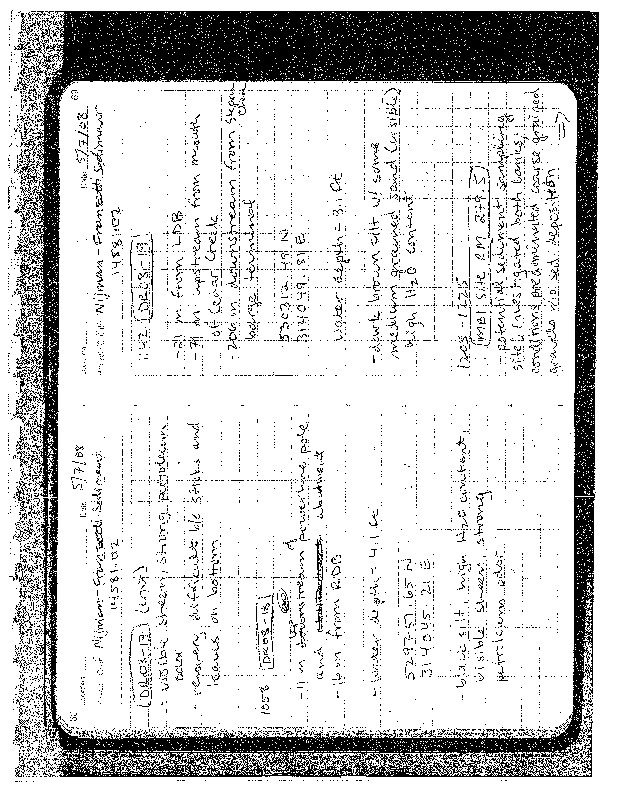 Date 5/7/08
Project / Client Nijman-Franzetti Sediment
14581.02
DR08-17 (cont)
- visible sheen, strong petroleum odor
- recovery difficult b/c sticks and
leaves on bottom
1058 DR08-18
- 11 m upstream of powerline pole
and abutment
- 16 m from RDB
- water depth = 4.1 ft
529757.65 N
314045.21 E
- black silt, high H2O content,
visible sheen, strong
petroleum odor
69
Date 5/7/08
Project / Client Nijman-Franzetti Sediment
14581.02
1142 DR08-19
- 21 m from LDB
- 71 m upstream from mouth
of Cedar Creek
- 200 m downstream from
barge terminal
530312.49 N
313049.31 E
water depth = 3.1 ft
- dark brown silt w/ some
medium grained sand (visible)
high H2O content
1205-1225
MBI site RM 279.5
- potential sediment sampling
site; investigated both banks,
conditions predominated coarse grained
gravels no sed. deposition